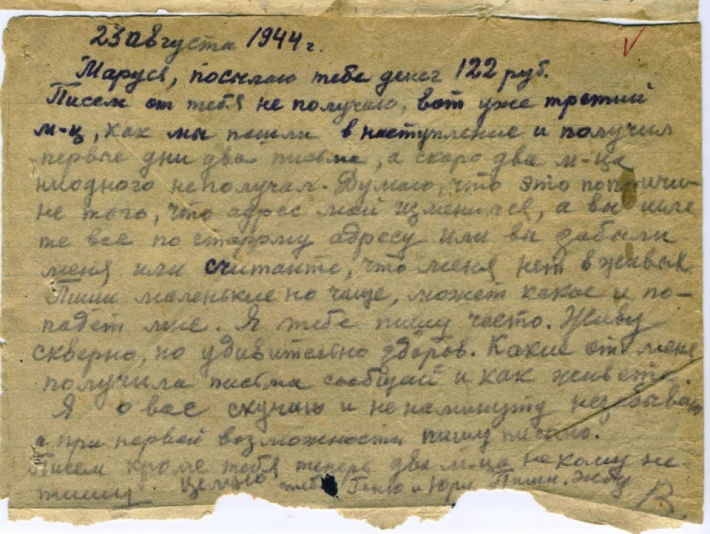 23 августа 1944 г.
Маруся, посылаю тебе денег 122 руб.
Писем от тебя не получаю, вот уже третий
м-ц, как мы пошли в наступление и получил
первые дни два письма, а скоро два м-ца
ниодного неполучал. Думаю, что это попричи-
не того, что адрес мой изменился, а вы шле
те все по старому адресу или вы забыли
меня или считаите, что меня нет вживых
Пиши маленькие но чаще, может какое и по-
падет мне. Я тебе пишу часто. Живу
скверно, но удивительно здоров. Какие от меня
получила письма сообщай и как живете.
Я о вас скучаю и не наминуту незабываю
а при первой возможности пишу письмо.
Писем кроме тебя теперь два м-ца некому не
пишу. Целую тебя Геню и Юри Пиши. Жду
В.